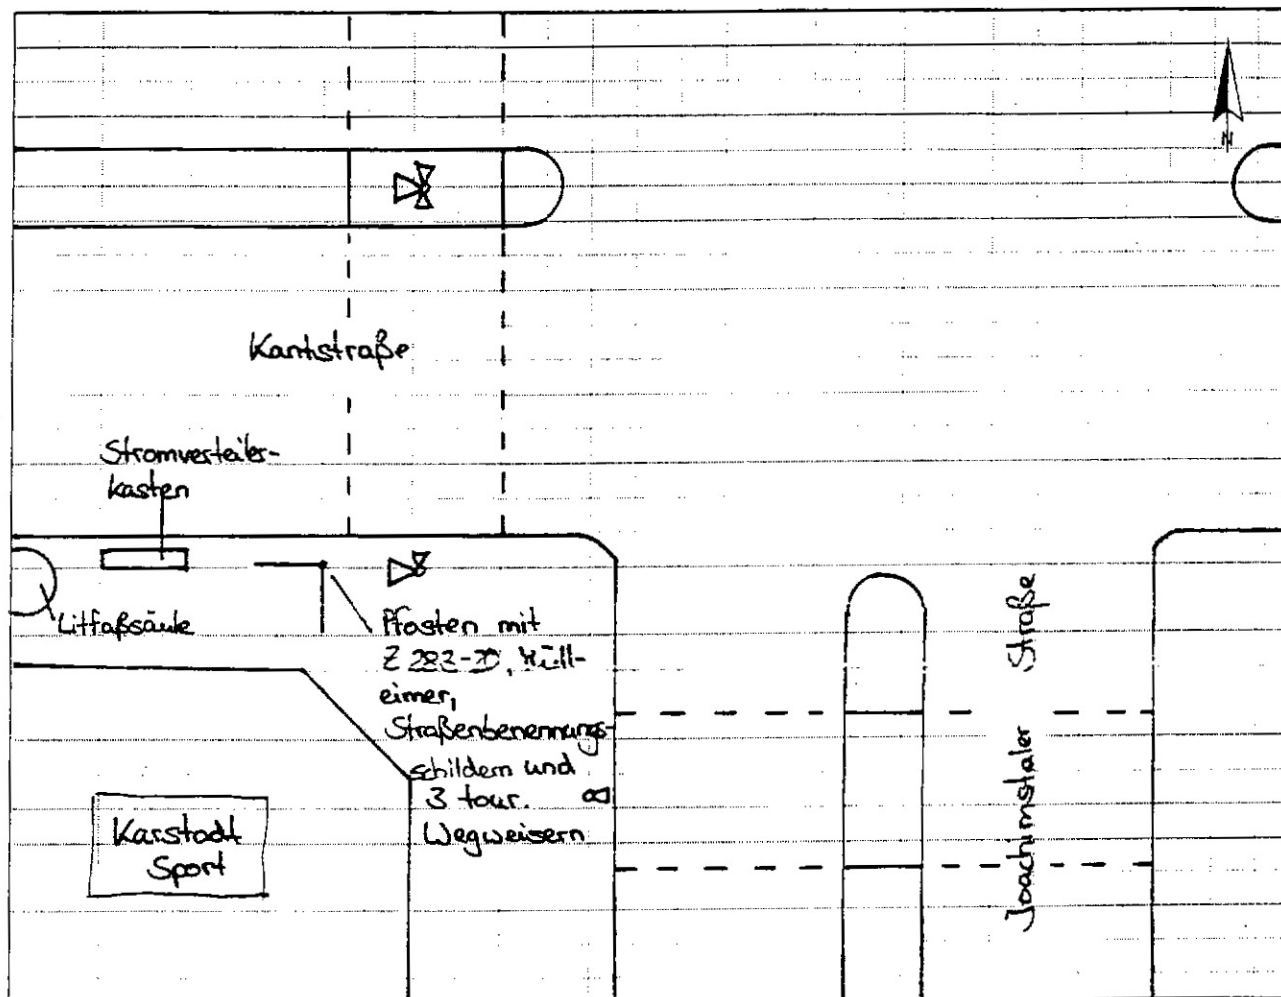 N
Kantstraße
Stromverteiler-
kasten
Litfaßsäule
Pfosten mit
Z 283-20, Müll-
eimer,
Straßenbenennungs-
schildern und
3 tour.
Wegweisern
Karstadt
Sport
Joachimstaler Straße